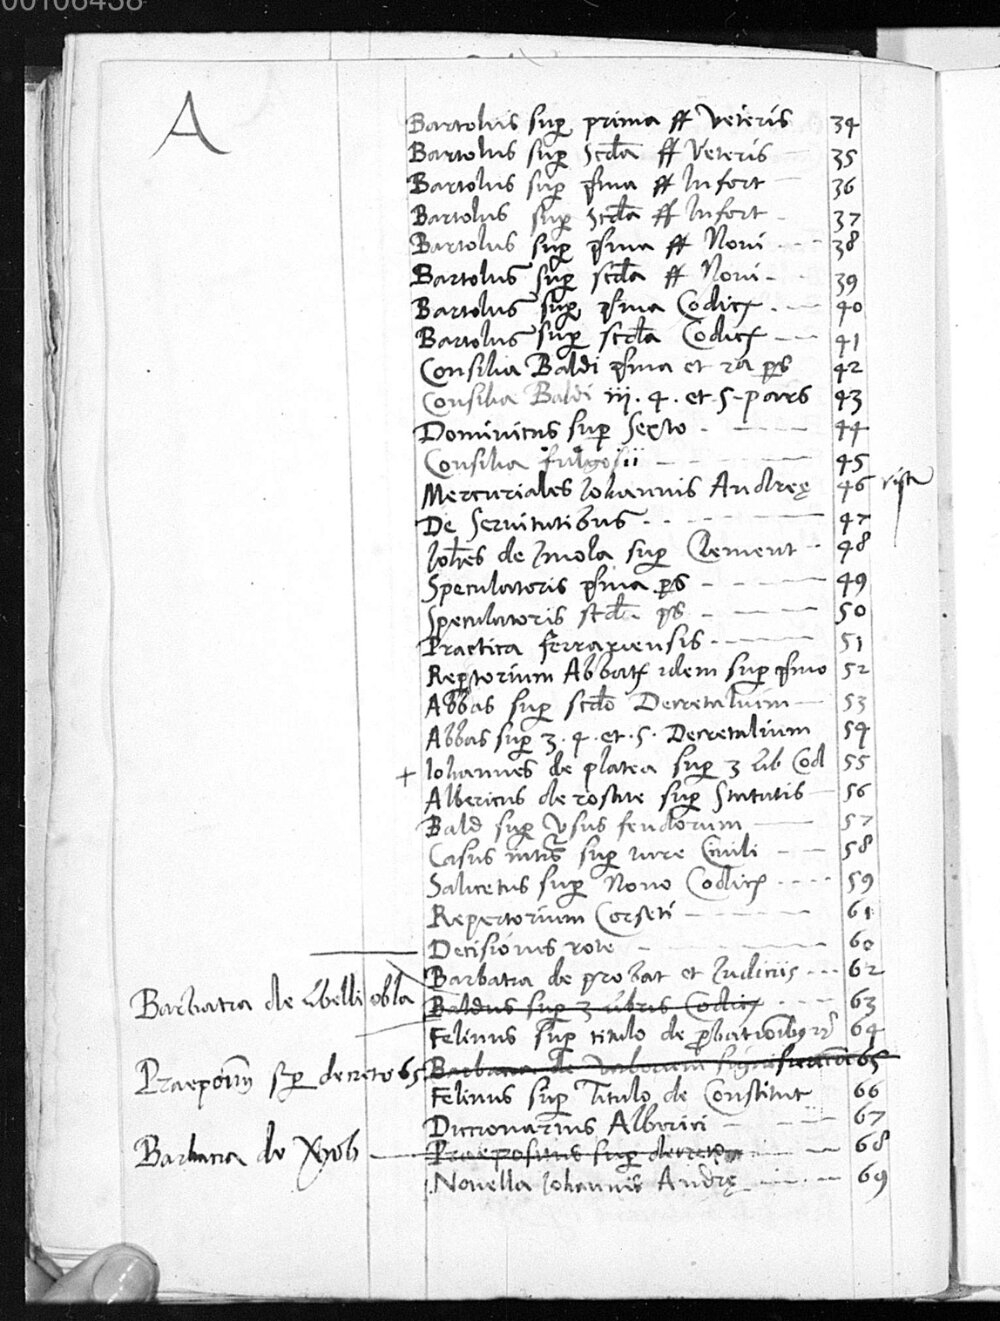 00106438
A
Bartolus sup prima ff veteris 34
Bartolus sup scda ff veteris 35
Bartolus sup pima ff Infort 36
Bartolus sup scda ff Infort 37
Bartolus sup pima ff Novi 38
Bartolus sup scda ff Novi 39
Bartolus sup pima Codic 40
Bartolus sup scda Codic 41
Consilia Baldi pima et 2a ps 42
Consilia Baldi iij. 4. et 5 partis 43
Dominicus sup Sexto 44
Consilia fulgosii 45
Mercuriales Iohannis Andreę 46
De Servitutibus 47
Iohes de Imola sup Clement 48
Speculatoris pima ps 49
Speculatoris scda ps 50
Practica ferrariensis 51
Reptorium Abbatis idem sup pimo 52
Abbas sup scdo Decretalium 53
Abbas sup 3. 4. et. 5. Decretalium 54
+ Iohannes de platea sup 3 Lib Cod 55
Albericus de rosate sup Statutis 56
Bald sup Vsus feudorum 57
Casus sup iure Civili 58
Salicetus sup Nono Codic 59
Repertorium Corseti 61
Decisiones rote 60
Barbatia de probat et Iudiciis 62
Barbatia de Libelli obla
Baldus sup 3 Libris Codic 63
Felinus sup titulo de pbationibus 64
Praepositus sup decreto 65
Barbatia de 65
Felinus sup Titulo de Constitut 66
Diccionarius Alberici 67
Barbatia de
Praepositus sup decreto 68
Novella Iohannis Andrę 69